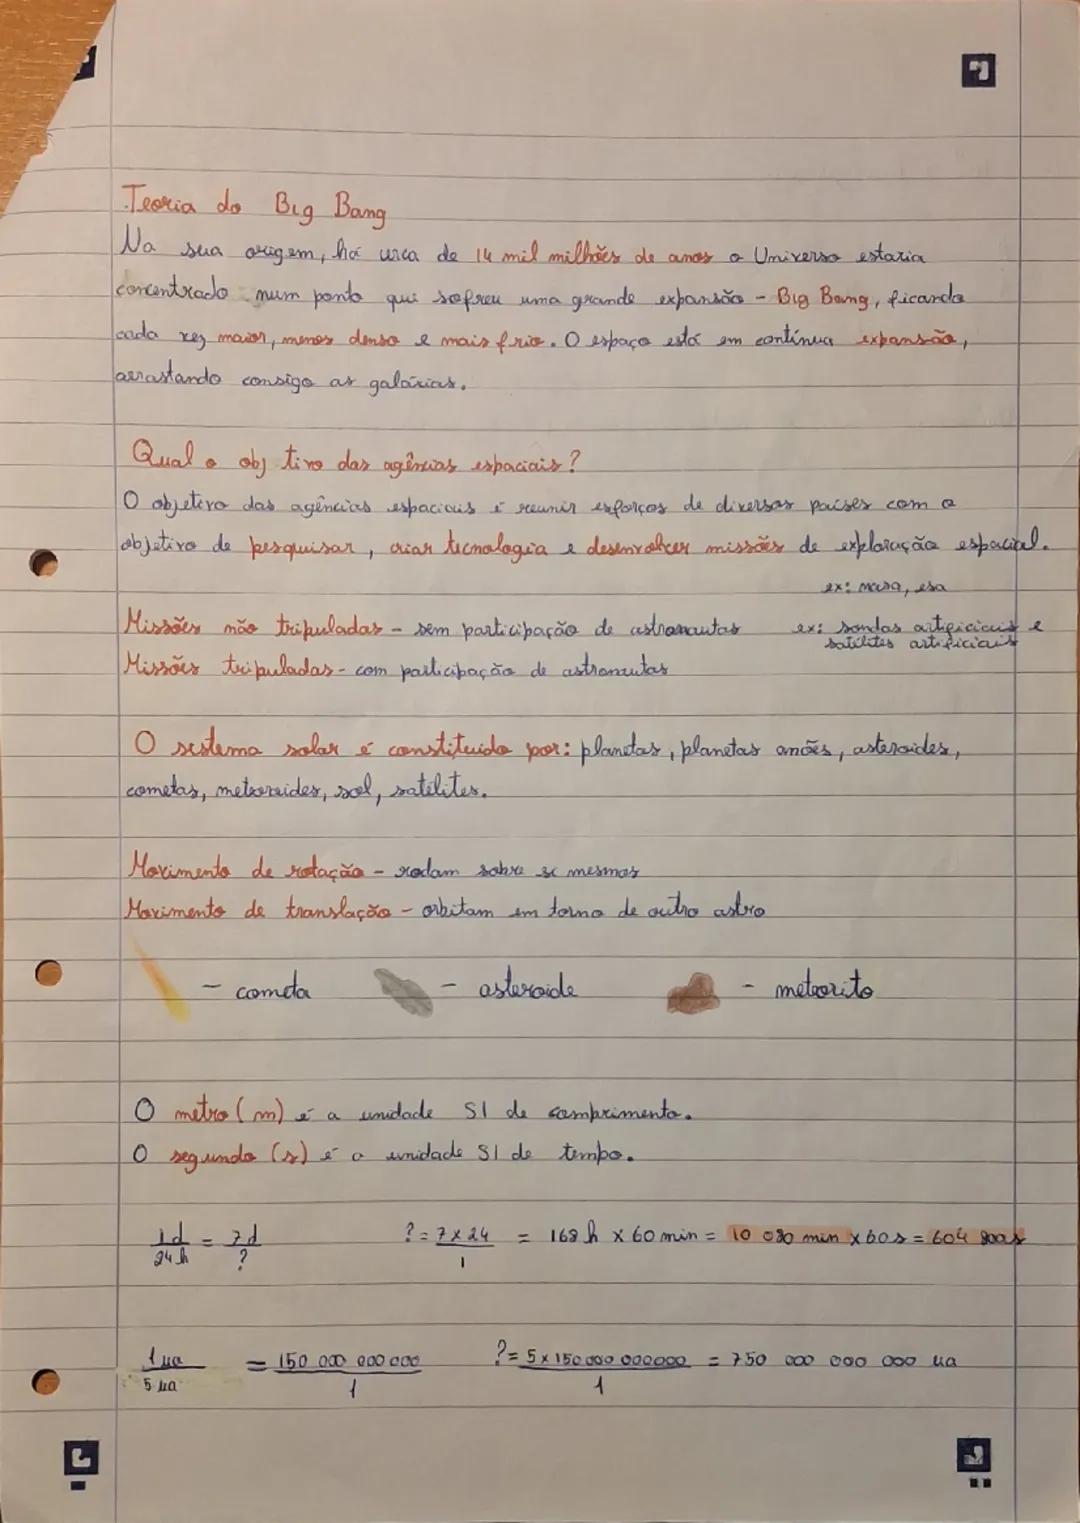 Teoria do Big Bang
Na sua origem, há cerca de 14 mil milhões de anos o Universo estaria
concentrado num ponto que sofreu uma grande expansão - Big Bang, ficando
cada vez maior, menos denso e mais frio. O espaço está em contínua expansão,
arrastando consigo as galáxias.
Qual o obj tivo das agências espaciais?
O objetivo das agências espaciais é reunir esforços de diversos países com o
objetivo de pesquisar, criar tecnologia e desenvolver missões de exploração espacial.
ex: nasa, esa
Missões não tripuladas - sem participação de astronautas ex: sondas artificiais e
satélites artificiais
Missões tripuladas - com participação de astronautas
O sistema solar é constituído por: planetas, planetas anões, asteroides,
cometas, meteoroides, sol, satélites.
Movimento de rotação - rodam sobre si mesmos
Movimento de translação - orbitam em torno de outro astro
- cometa - asteroide - meteorito
O metro (m) é a unidade SI de comprimento.
O segundo (s) é a unidade SI de tempo.
1d = 7d ? = 7 x 24 = 168 h x 60 min = 10 080 min x 60 s = 604 800 s
24 h ? 1
1 ua = 150 000 000 000 ? = 5 x 150 000 000000 = 750 000 000 000 ua
5 ua 1 1